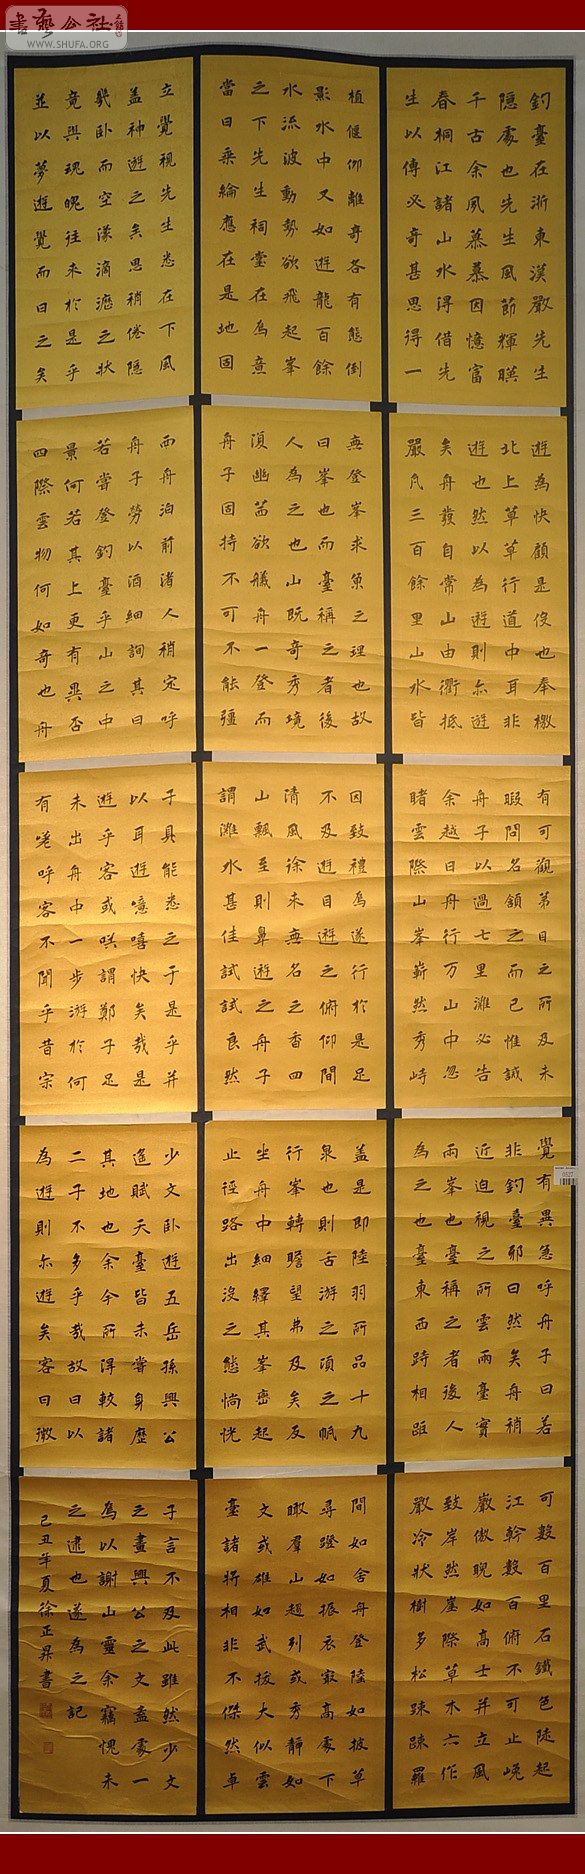 書藝公社
WWW.SHUFA.ORG
釣臺在浙東漢嚴先生
隱處也先生風節輝暎
千古余夙慕慕因憶富
春桐江諸山水得借先
生以傳必奇甚思得一
遊為快顧是役也奉檄
北上草草行道中耳非
遊也然以為遊則亦遊
矣舟發自常山由衢抵
嚴凡三百餘里山水皆
有可觀第目之所及未
暇問名頷之而已惟誡
舟子以過七里灘必告
余越日舟行万山中忽
睹雲際山峯嶄然秀峙
覺有異急呼舟子曰若
非釣臺邪曰然矣舟稍
近迫視之所雲兩臺實
兩峯也臺稱之者後人
為之也臺東西跱相距
可數百里石鐵色陡起
江幹數百俯不可止巉
巖傲睨如高士并立風
致岸然崖際草木亦作
嚴冷狀樹多松踈踈羅
植偃仰離奇各有態倒
影水中又如遊龍百餘
水流波動勢欲飛起峯
之下先生祠堂在焉意
當日垂綸應在是地固
無登峯求魚之理也故
曰峯也而臺稱之者後
人為之也山既奇秀境
須幽茜欲艤舟一登而
舟子固持不可不能彊
因致禮焉遂行於是足
不及遊目遊之俯仰間
清風徐來無名之香四
山飄至則鼻遊之舟子
謂灘水甚佳試試良然
蓋是即陸羽所品十九
泉也則舌游之頃之帆
行峯轉瞻望弗及矣反
坐舟中細繹其峯巒起
止徑路出沒之態惝怳
間如舍舟登陸如披草
尋蹬如振衣最高處下
瞰羣山趨列或秀靜如
文或雄如武拔大似雲
臺諸將相非不傑然卓
立覺視先生悉在下風
蓋神遊之矣思稍倦隱
幾卧而空濛滴瀝之狀
竟與魂魄往來於是乎
並以夢遊覺而日之矣
而舟泊前渚人稍定呼
舟子勞以酒細詢其曰
若嘗登釣臺乎山之中
景何若其上更有異否
四際雲物何如奇也舟
子具能悉之于是乎并
以耳遊噫嘻快矣哉是
遊乎客或咲謂鄭子足
未出舟中一步游於何
有嗟呼客不聞乎昔宗
少文卧遊五岳孫興公
遙賦天臺皆未嘗身歷
其地也余今所得較諸
二子不多乎哉故曰以
為遊則亦遊矣客曰微
子言不及此雖然少文
之畫興公之文盍處一
為以謝山靈余竊愧未
之逮也遂為之記
己丑年夏徐正昇書
0527